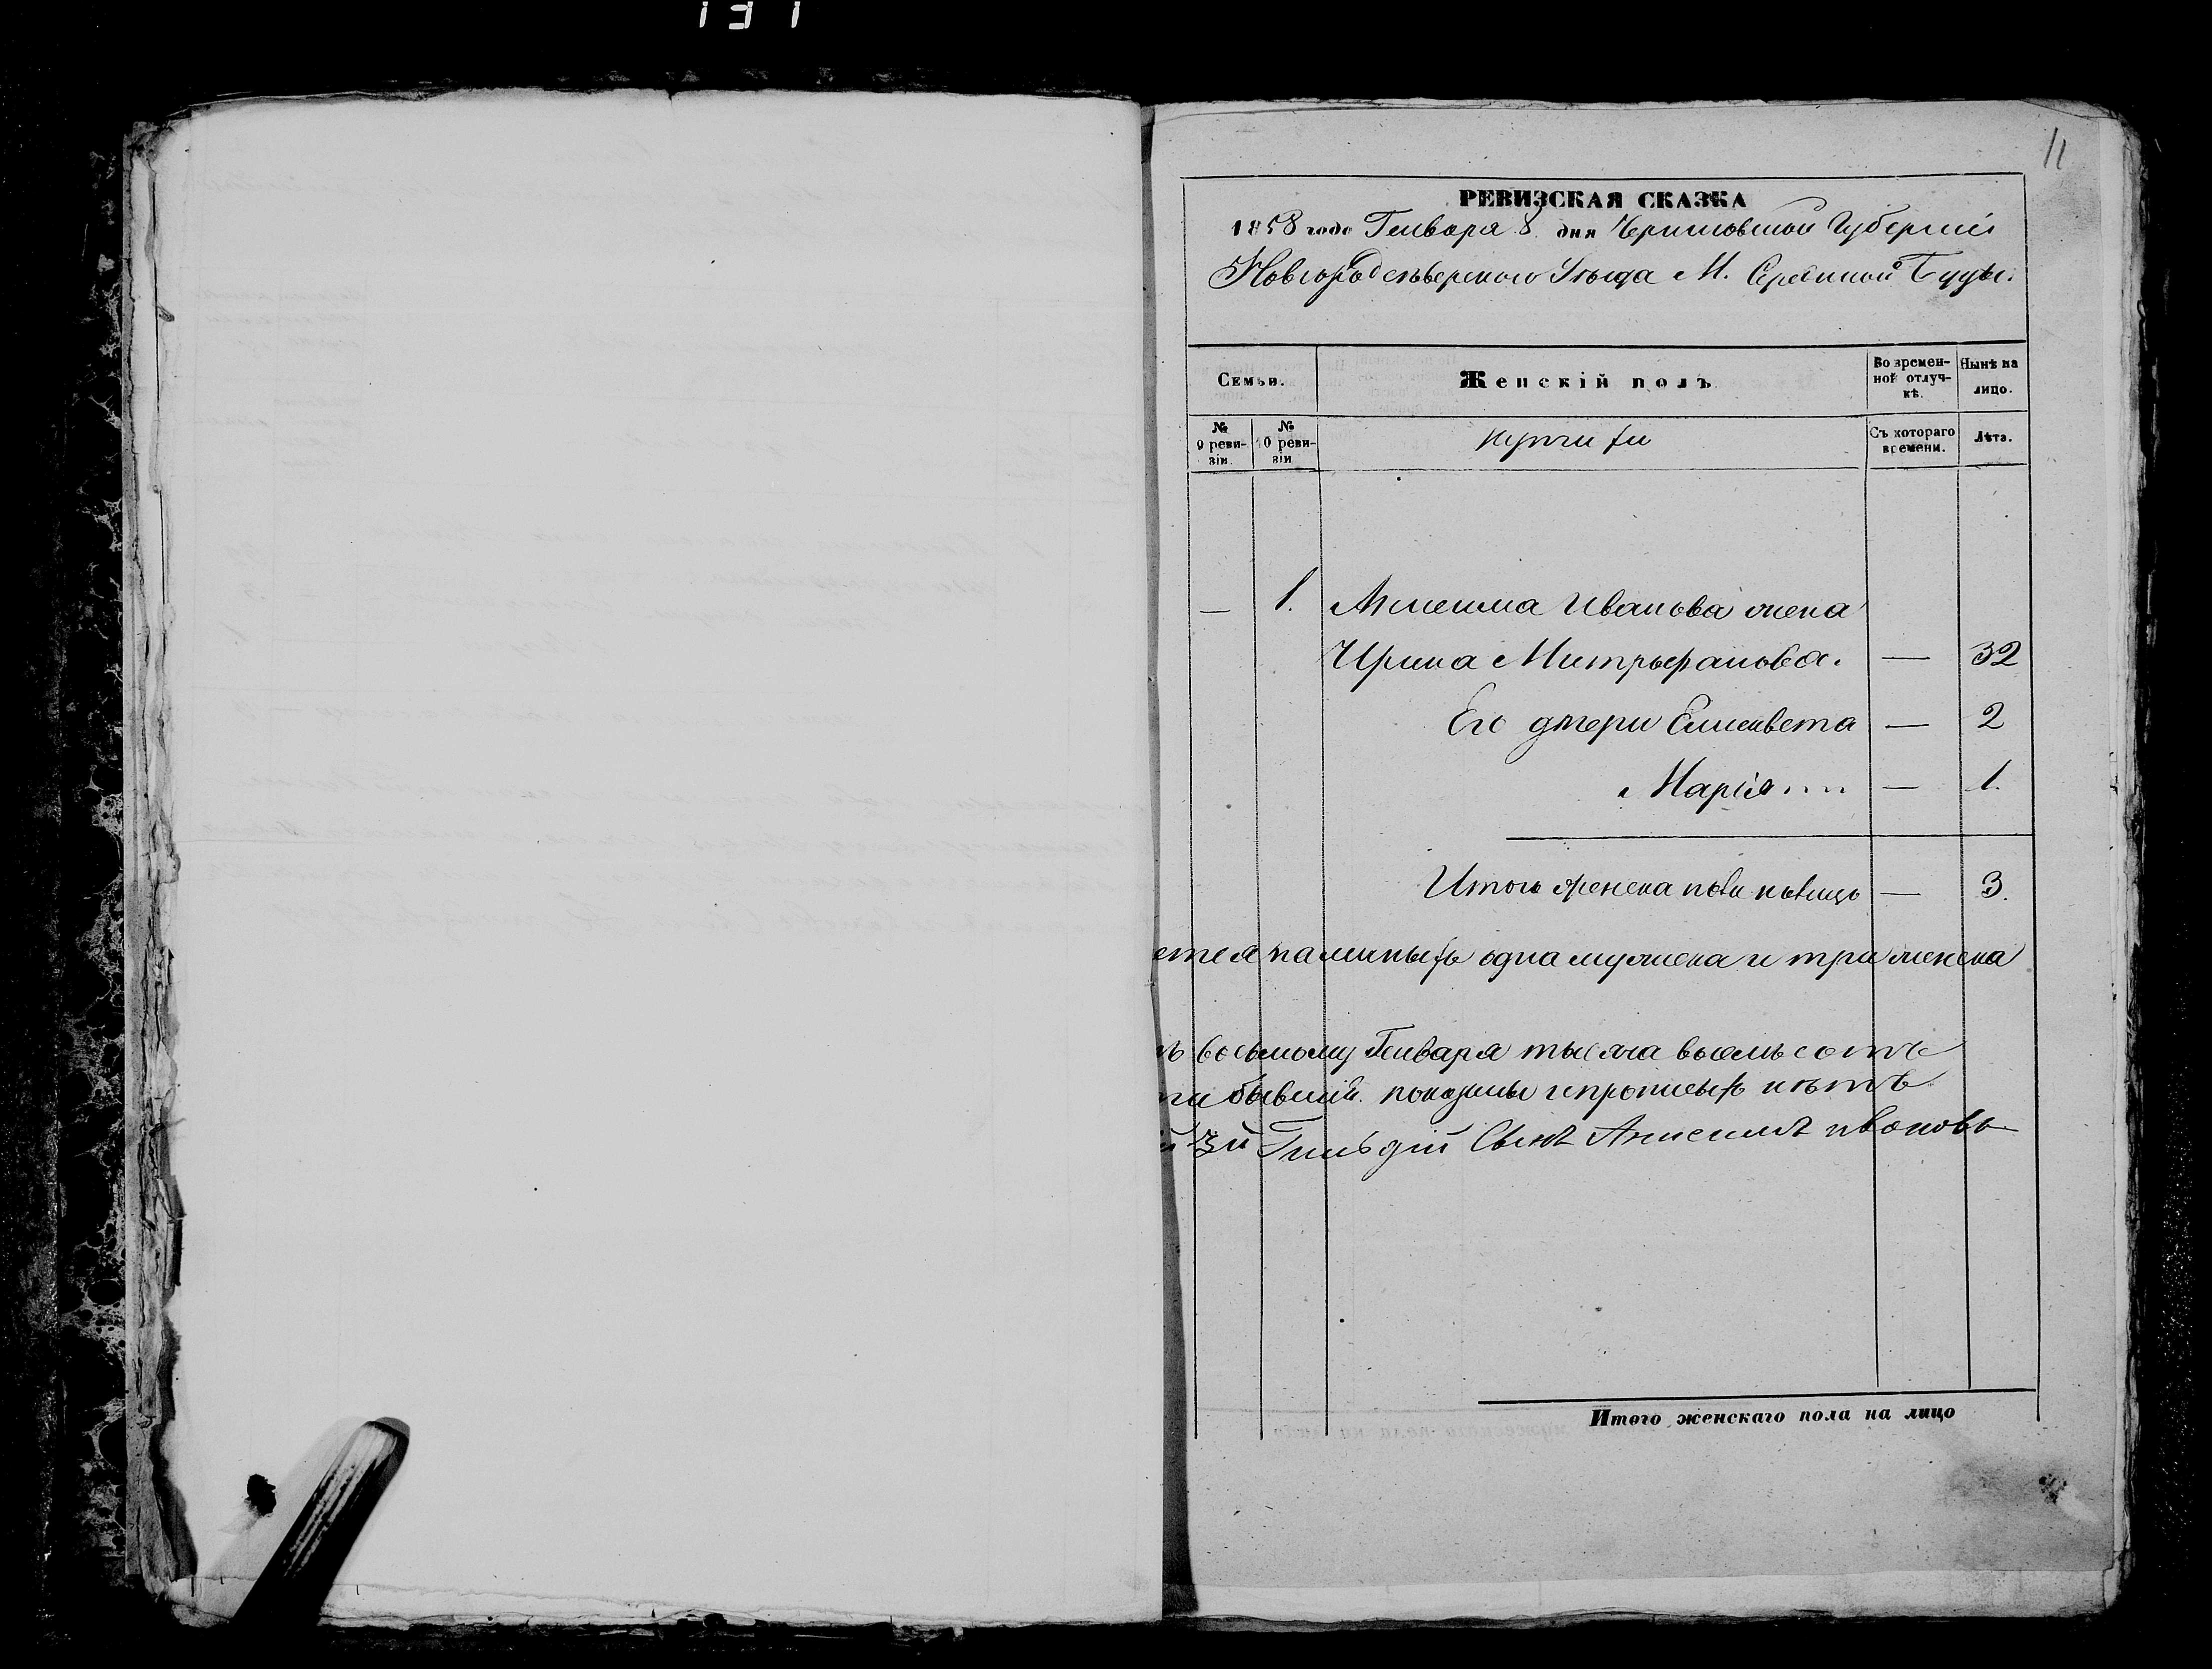 131
11
РЕВИЗСКАЯ СКАЗКА
1858 года Генваря 8 дня Черниговской Губерніи
Новгородсѣверскаго Уѣзда М. Середи́ной Буды.
Семьи.
Женскій полъ
Во времен-
ной отлуч-
кѣ.
Нынѣ на
лицо.
№
9 реви-
зіи.
№
10 реви-
зіи
Съ котораго
времени.
Лѣта.
— 1. Анисима Иванова жена
Ирина Митрофанова. — 32
Его дочери Елисавета — 2
Марія .... — 1.
Итого женска пола налицо — 3.
ется наличныхъ одна мужска и три женска
восьмому Генваря тысяча восемь сотъ
бывшій показаны и прописныхъ нѣтъ
й 3й Гильдіи Сынъ Анисимъ Ивановъ
Итого женскаго пола на лицо